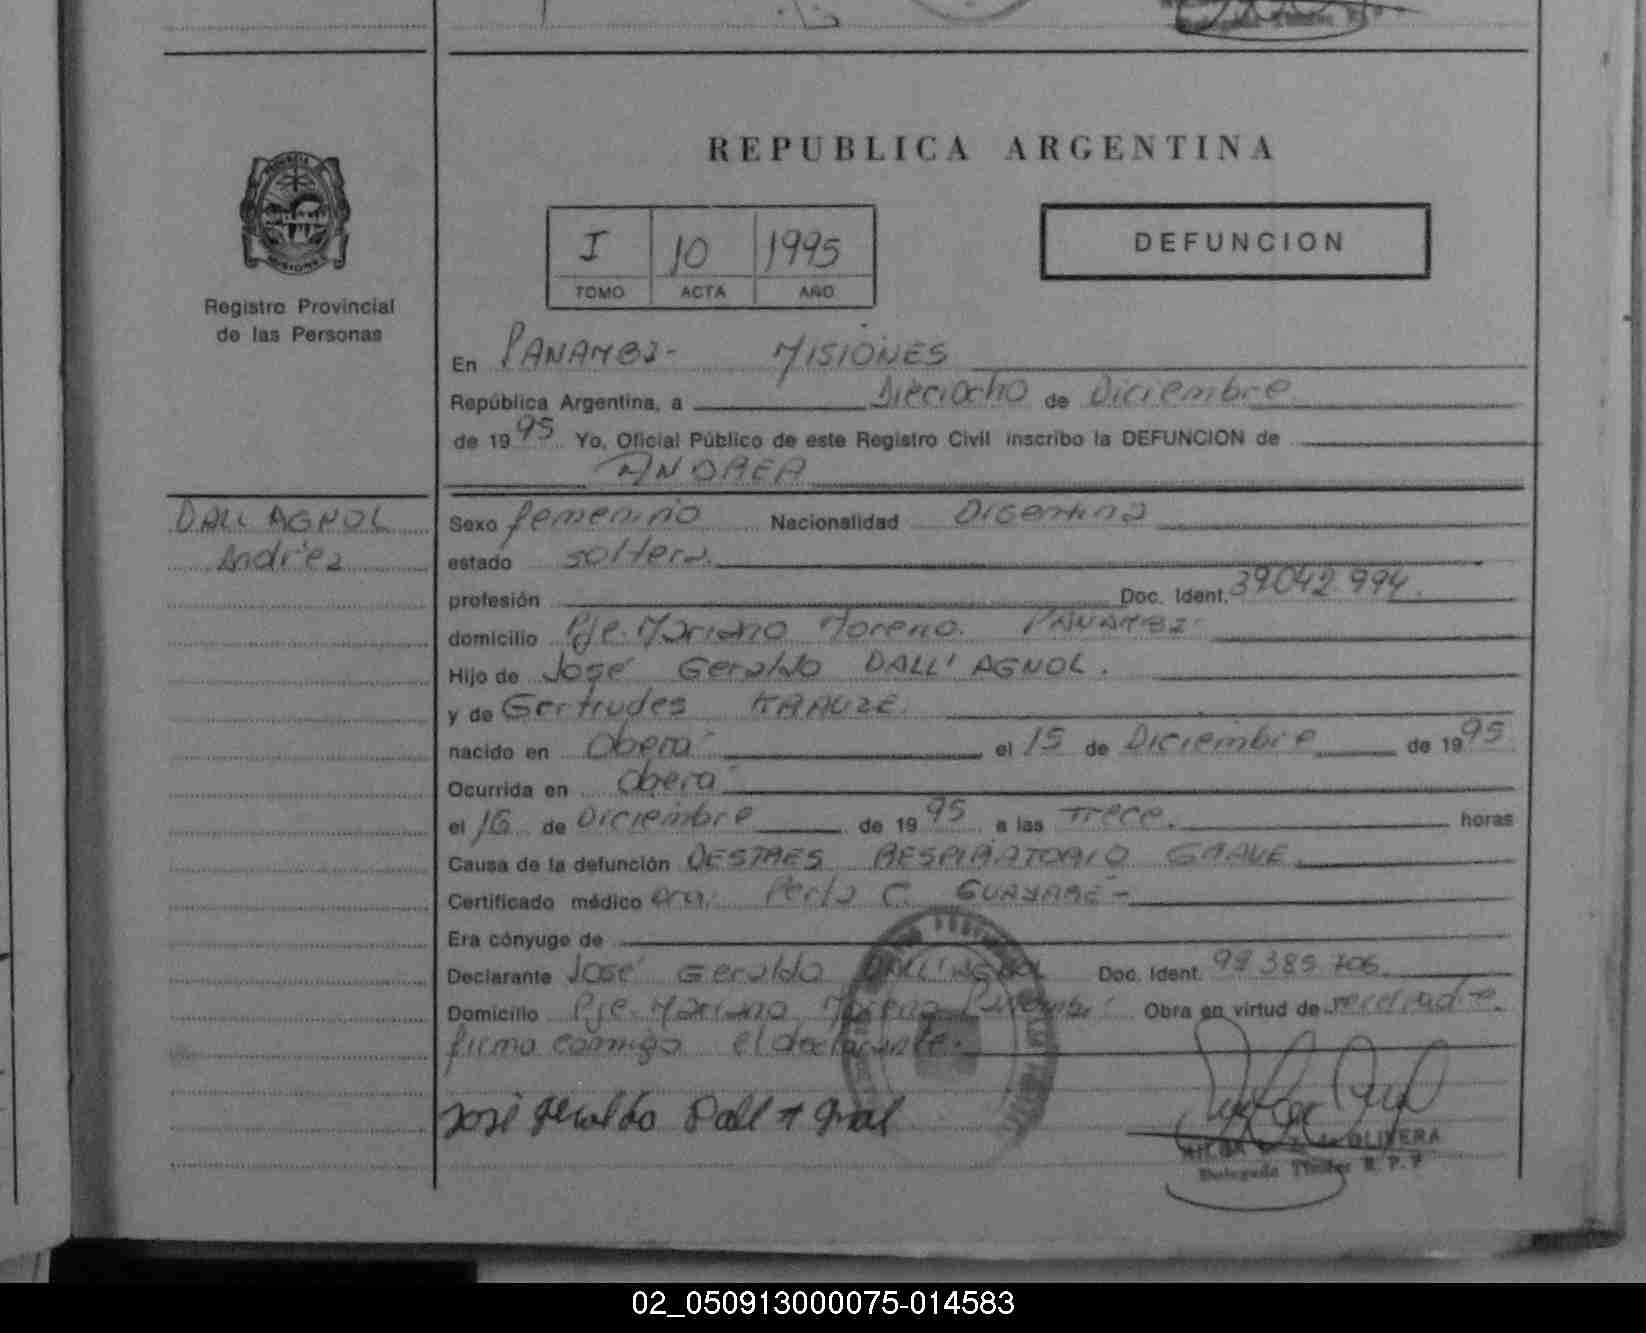 REPUBLICA ARGENTINA
I 10 1995
TOMO ACTA AÑO
DEFUNCION
PROVINCIA
MISIONES
Registro Provincial
de las Personas
En PANAMBI- MISIONES
República Argentina, a Dieciocho de Diciembre
de 19 95 Yo, Oficial Público de este Registro Civil inscribo la DEFUNCION de
ANDREA
DALL AGNOL
Andrea
Sexo femenino Nacionalidad Argentina
estado soltera.
profesión Doc. Ident. 39.042.994.
domicilio Pje. Mariano Moreno. PANAMBI-
Hijo de José Geraldo DALL' AGNOL.
y de Gertrudes KRAUZE.
nacido en Oberá el 15 de Diciembre de 19 95
Ocurrida en Oberá
el 16 de Diciembre de 19 95 a las Trece. horas
Causa de la defunción DESTRES RESPIRATORIO GRAVE
Certificado médico Dra. Perla C. GUAYARÉ-
Era cónyuge de
Declarante José Geraldo DALL'AGNOL Doc. Ident. 92 385 706
Domicilio Pje. Mariano Moreno Panambí Obra en virtud de ser el padre.
firma conmigo el declarante.
José Geraldo Dall
OLIVERA
Delegada Titular R. P. P
02_050913000075-014583